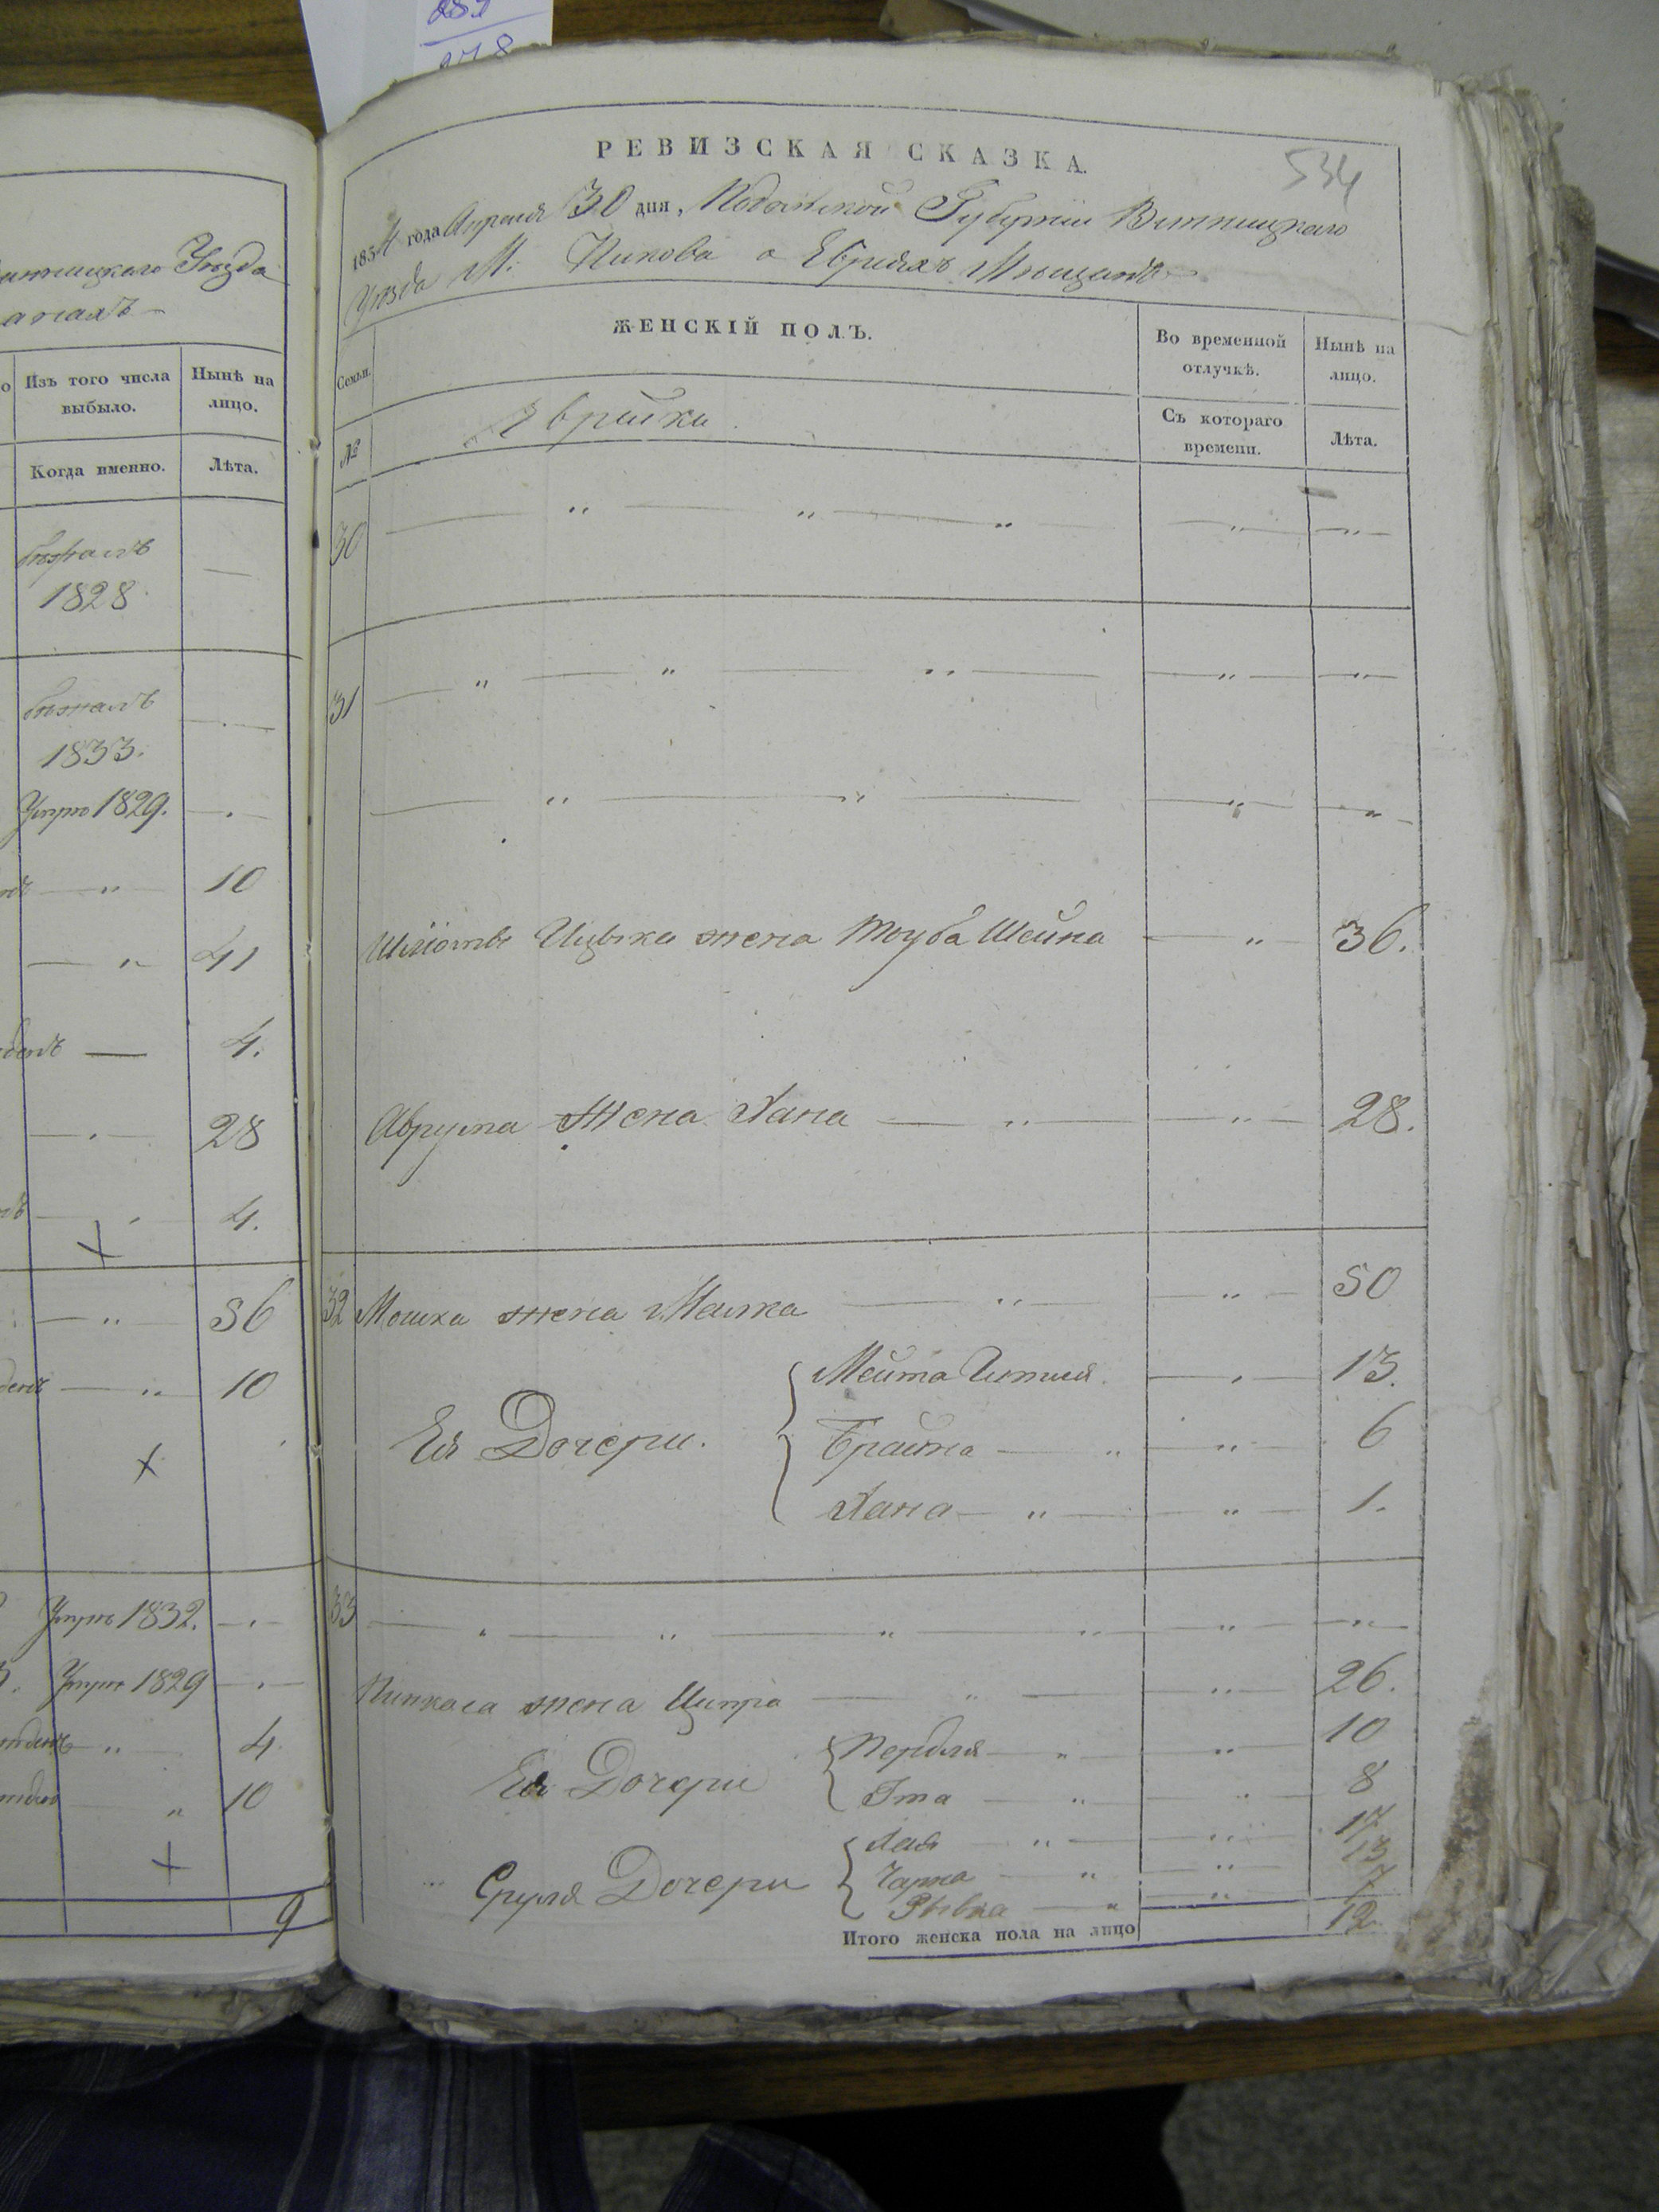 282
278
Уѣзда
Изъ того числа выбыло.
Нынѣ на лицо.
Когда именно.
Лѣта.
бѣжалъ
1828
бѣжалъ
1833.
Умре 1829.
10
41
4.
28
4.
56
10
Умре 1832.
Умре 1829
4
10
9
РЕВИЗСКАЯ СКАЗКА.
534
1834 года Апреля 30 дня, Подольской Губерніи Винницкаго
Уѣзда М: Пикова о Евреяхъ Мѣщанахъ
Семьи.
ЖЕНСКІЙ ПОЛЪ.
Во временной отлучкѣ.
Нынѣ на лицо.
№
Еврейки
Съ котораго времени.
Лѣта.
30
31
Ицька жена Тоуба Шейна 36.
Аврума Жена Хана 28.
32 Мошка жена Малка 50
Мейта 13.
Ея Дочери.
Брайна 6
Хана 1.
33
Пинкаса жена Ципра 26.
Перля 10
Ея Дочери
Гта 8
Хая 17
Сруля Дочери
Чарна 13
Рывка 7
Итого женска пола на лицо 12.